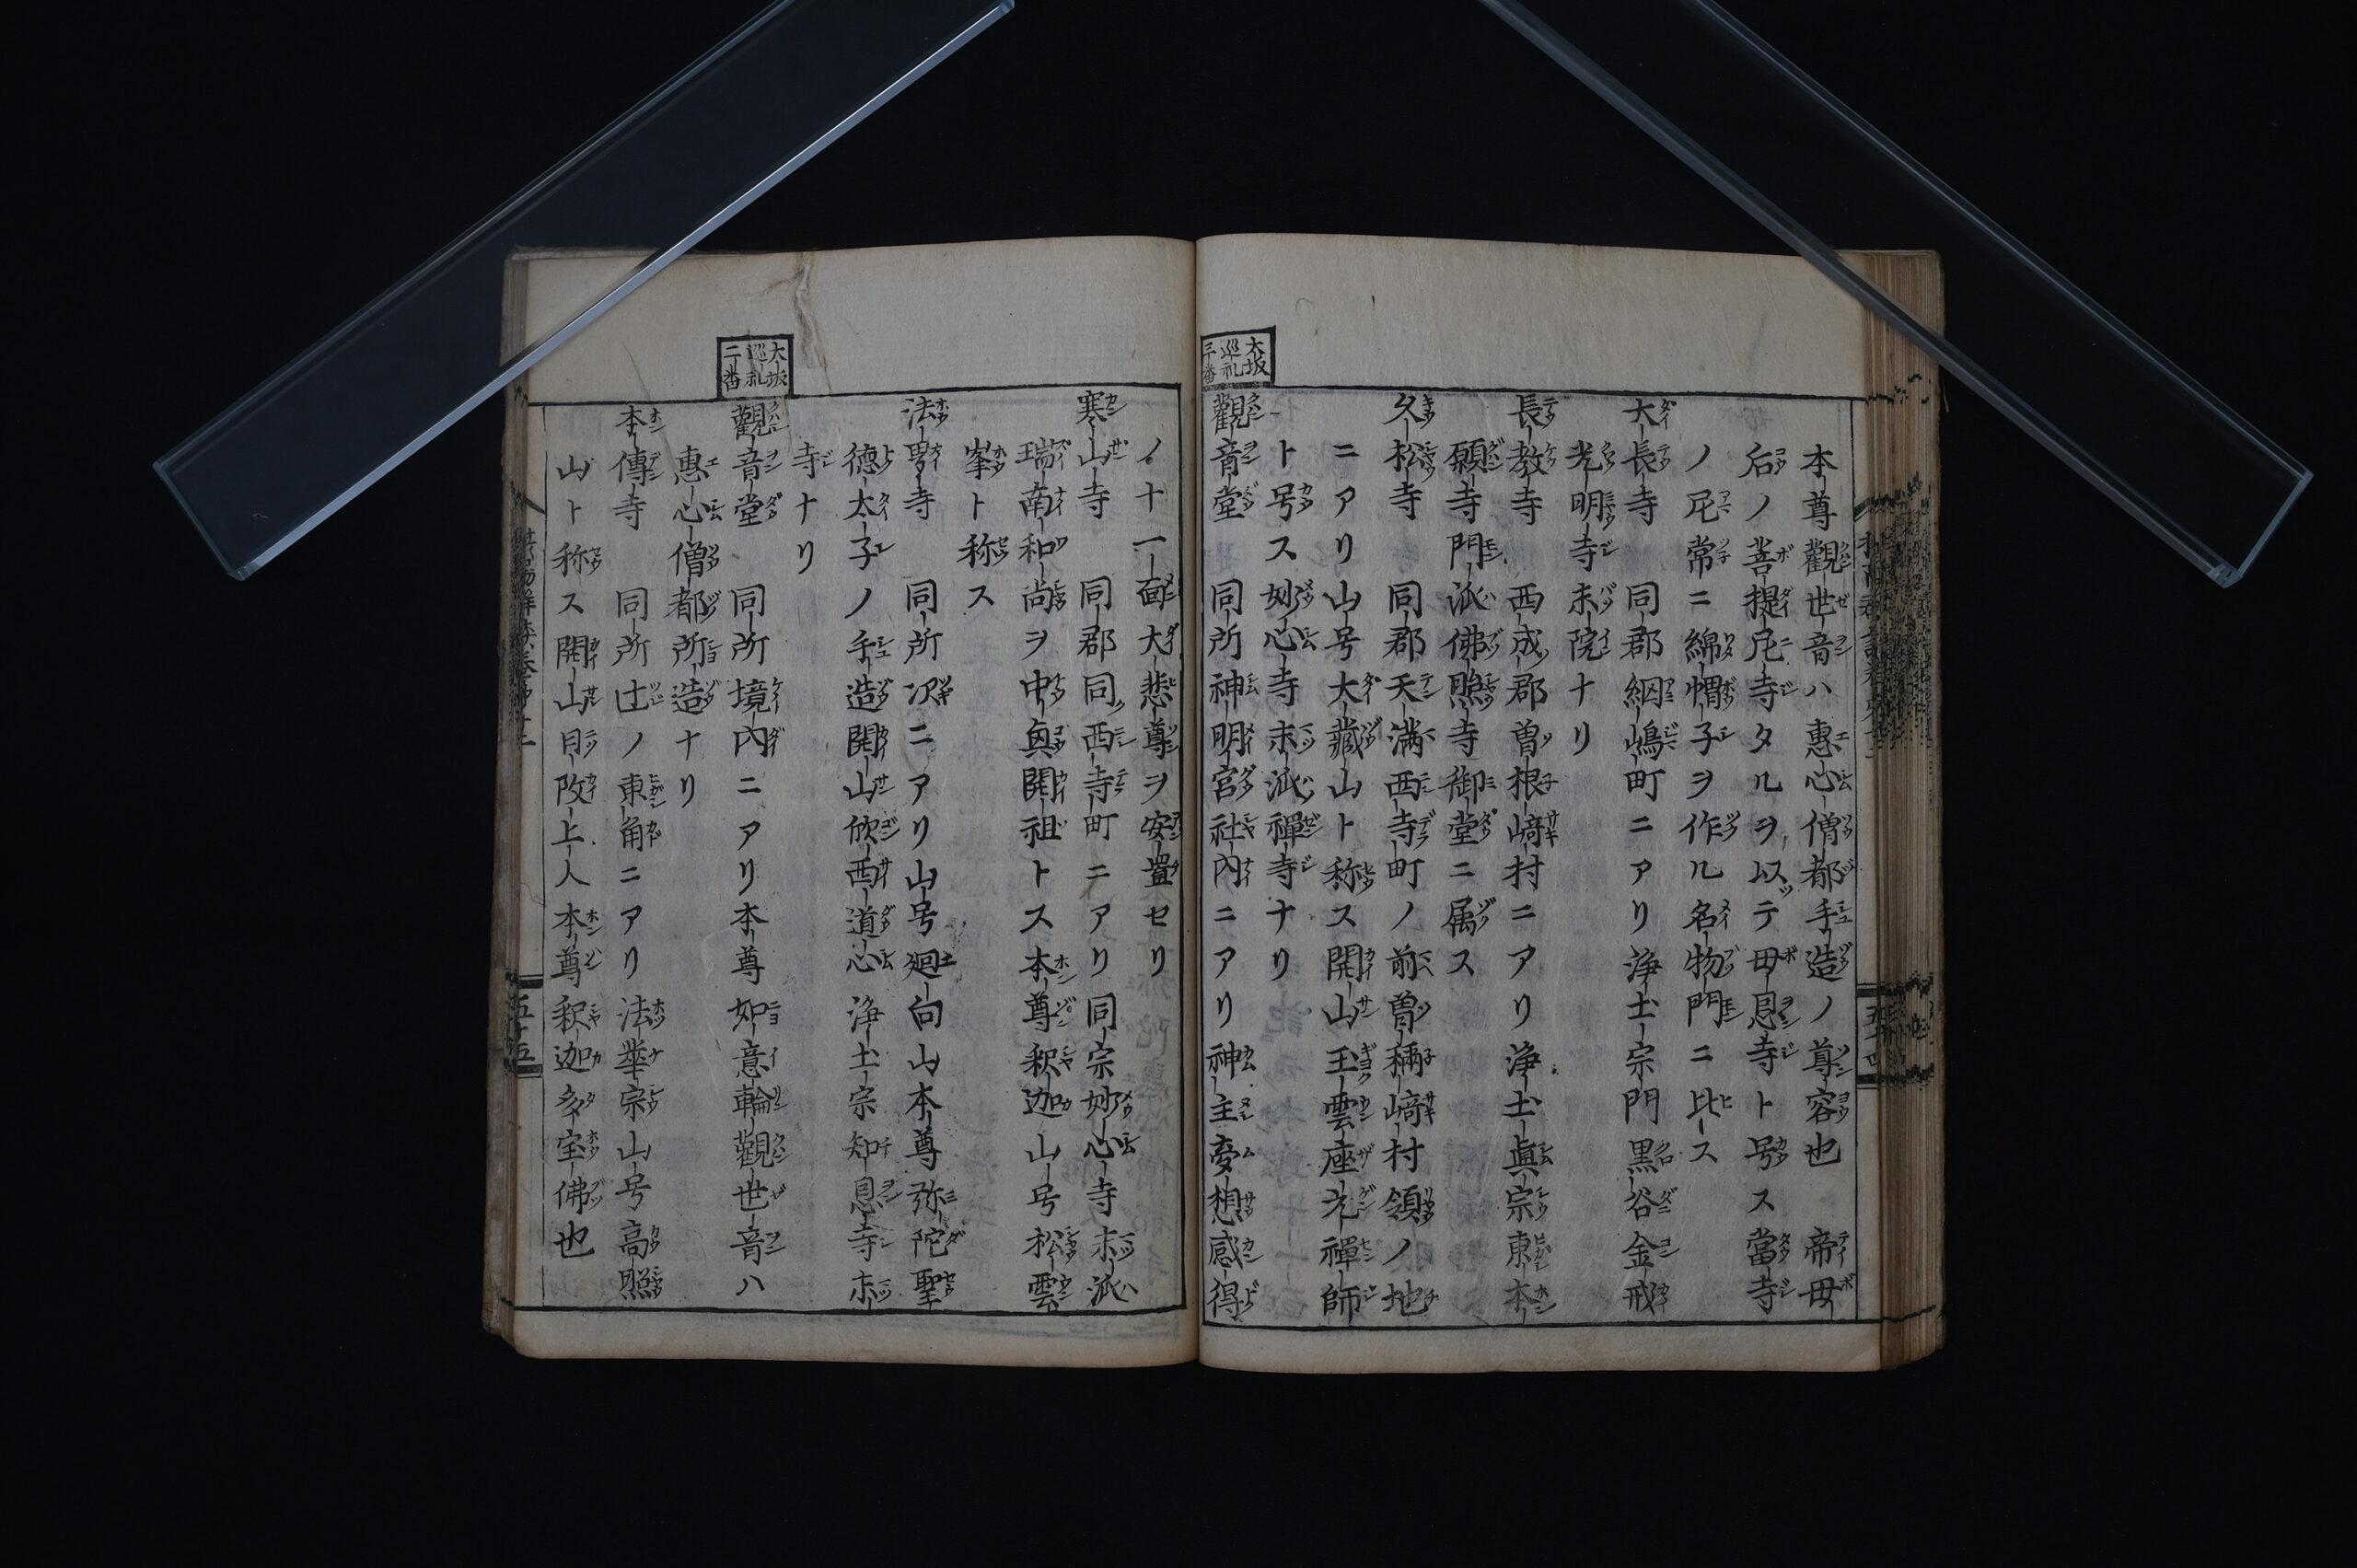 本尊觀世音ハ惠心僧都手造ノ尊容也　帝母
后ノ菩提尼寺タルヲ以テ母恩寺ト号ス當寺
ノ尼常ニ綿帽子ヲ作ル名物門ニ比ス
大長寺　同郡網嶋町ニアリ浄土宗門黒谷金戒
光明寺末院ナリ
長教寺　西成郡曽根﨑村ニアリ浄土眞宗東本
願寺門派佛照寺御堂ニ属ス
久松寺　同郡天満西寺町ノ前曽祢﨑村領ノ地
ニアリ山号大藏山ト称ス開山玉雲座元禪師
ト号ス妙心寺末派禪寺ナリ
大坂
巡礼
三番
觀音堂　同所神明宮社内ニアリ神主夢想感得
ノ十一面大悲尊ヲ安置セリ
寒山寺　同郡同西寺町ニアリ同宗妙心寺末派
瑞南和尚ヲ中興開祖トス本尊釈迦山号松雲
峯ト称ス
法界寺　同所次ニアリ山号廻向山本尊弥陀聖
徳太子ノ手造開山欣西道心浄土宗知恩寺末
寺ナリ
大坂
巡礼
二番
觀音堂　同所境内ニアリ本尊如意輪觀世音ハ
惠心僧都所造ナリ
本傳寺　同所辻ノ東角ニアリ法華宗山号高照
山ト称ス開山日政上人本尊釈迦多宝佛也
五十五